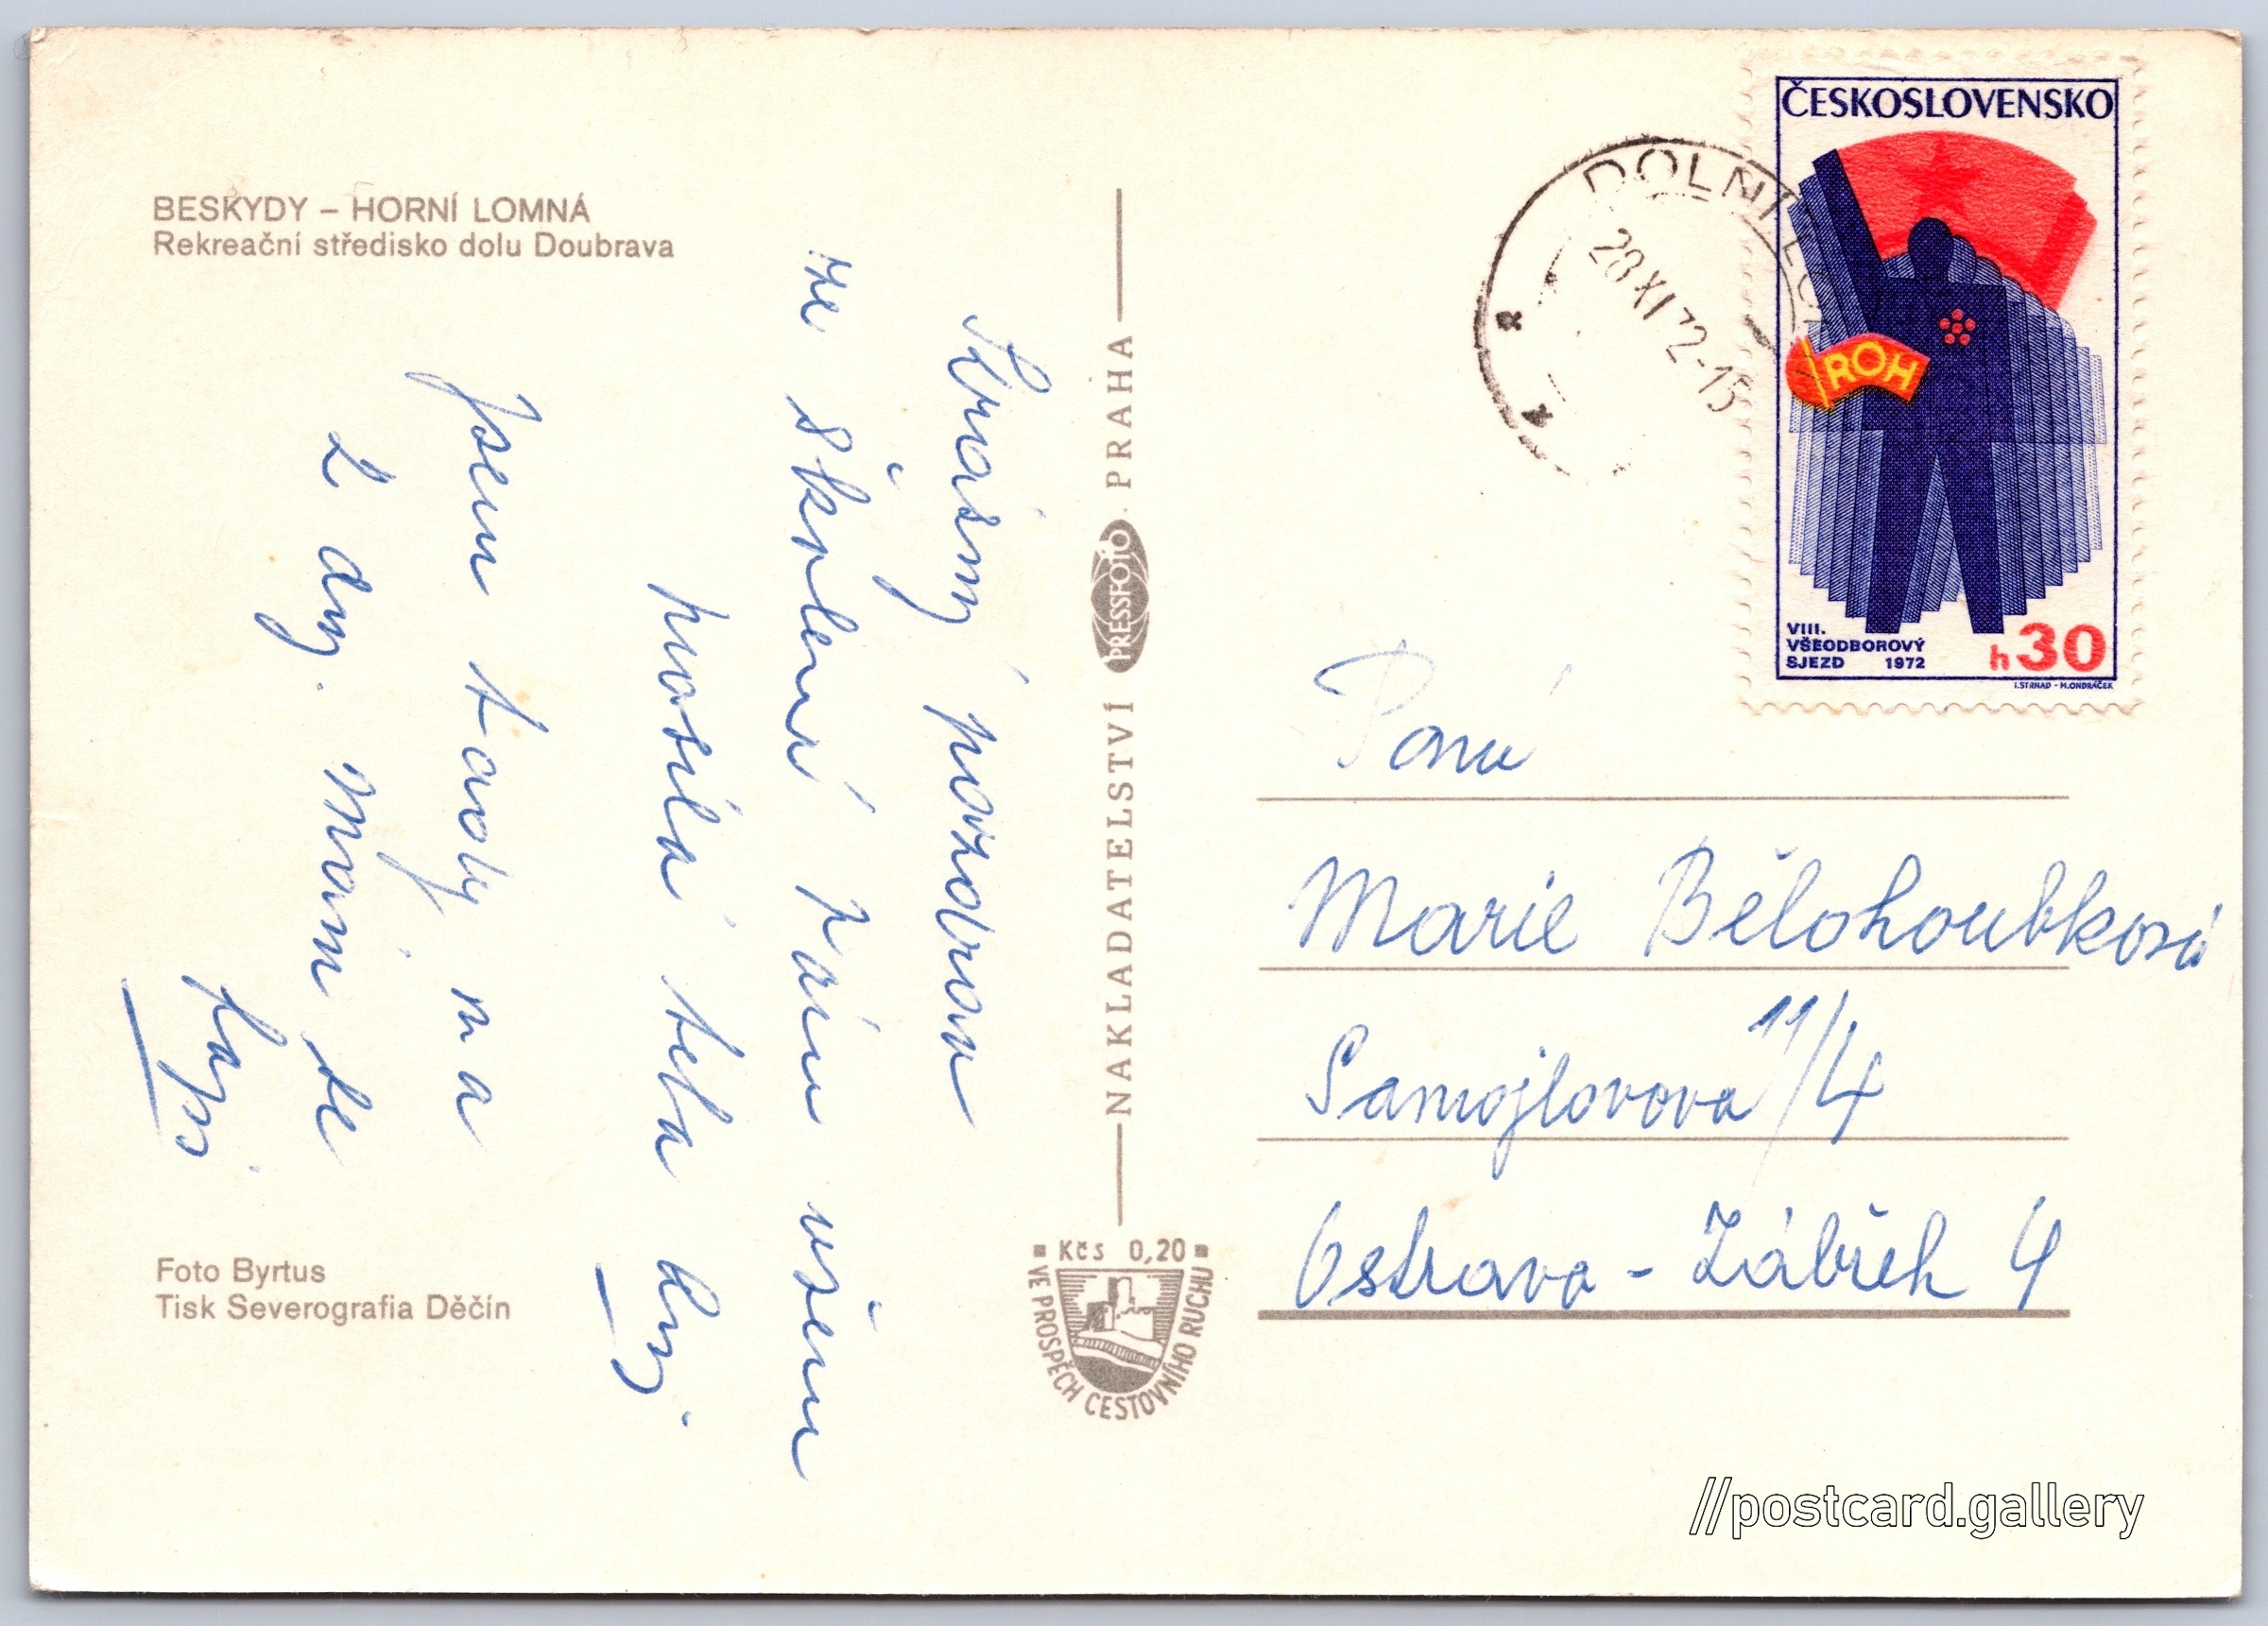 BESKYDY – HORNÍ LOMNÁ
Rekreační středisko dolu Doubrava
Krásný pozdrav
ze školení Vám všem
posílá teta
Jsem tady na
2 dny. Mám se
Foto Byrtus
Tisk Severografia Děčín
NAKLADATELSTVÍ PRESSFOTO PRAHA
Kčs 0,20
VE PROSPĚCH CESTOVNÍHO RUCHU
DOLNÍ
28 XI 72-15
ČESKOSLOVENSKO
ROH
VIII.
VŠEODBOROVÝ
SJEZD 1972
h30
I. STRNAD - M. ONDRÁČEK
Paní
Marie Bělohoubková
Samojlovova 11/4
Ostrava - Zábřeh 4
//postcard.gallery